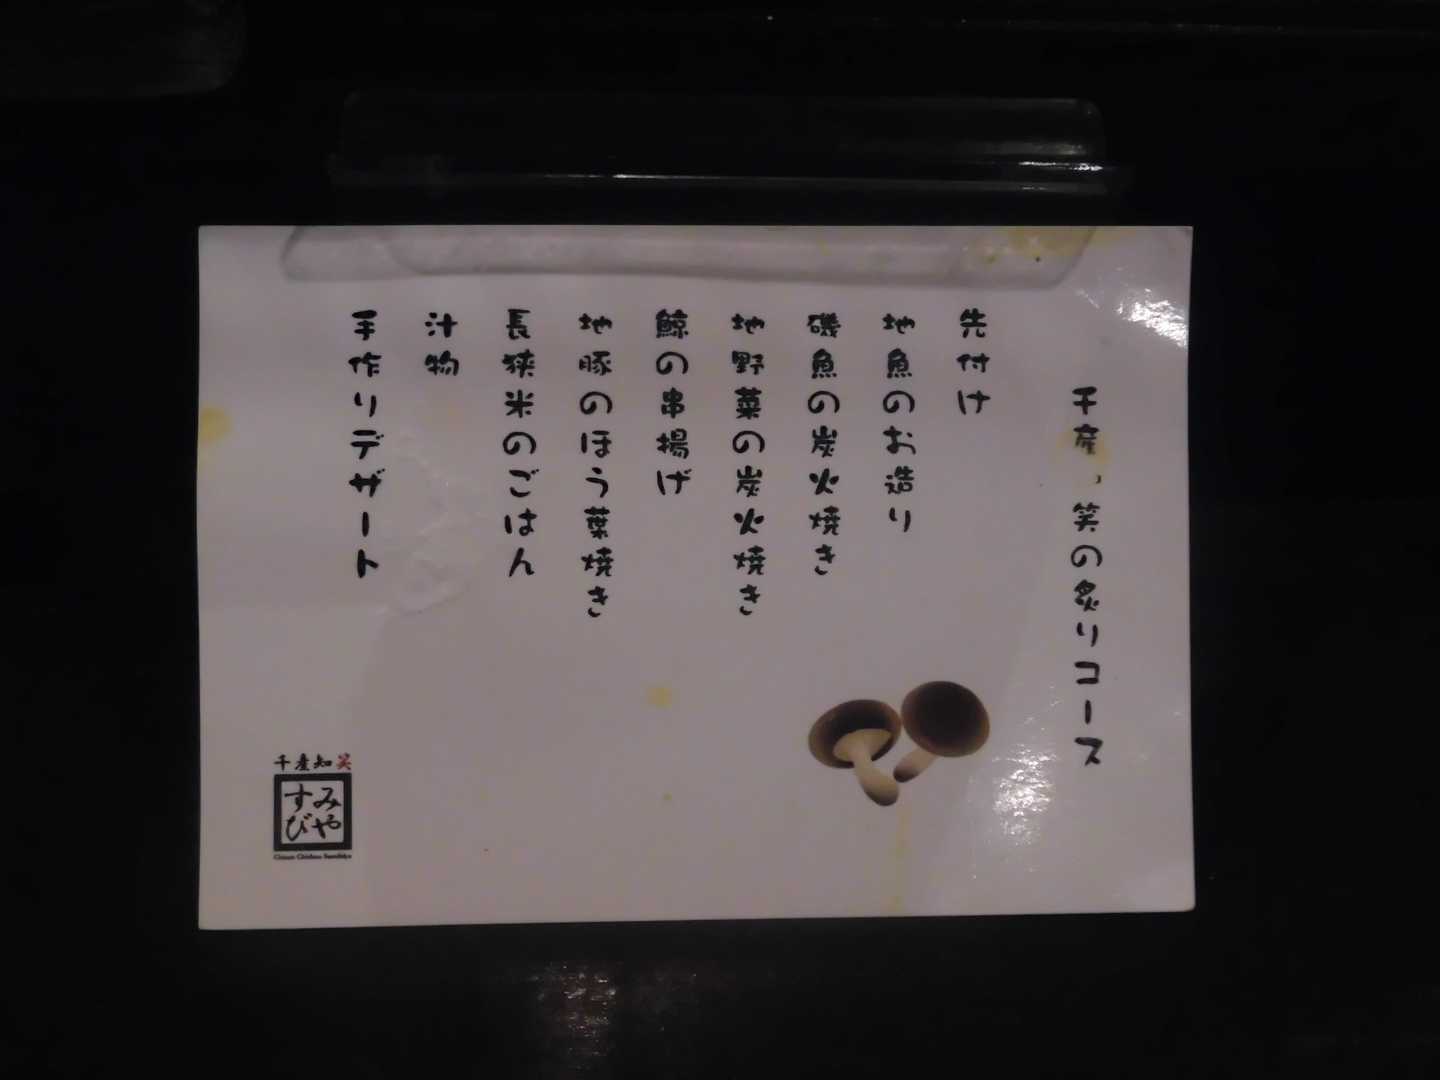 千産、笑の炙りコース
先付け
地魚のお造り
磯魚の炭火焼き
地野菜の炭火焼き
鯨の串揚げ
地豚のほう葉焼き
長狭米のごはん
汁物
手作りデザート
千産知笑
すみびや